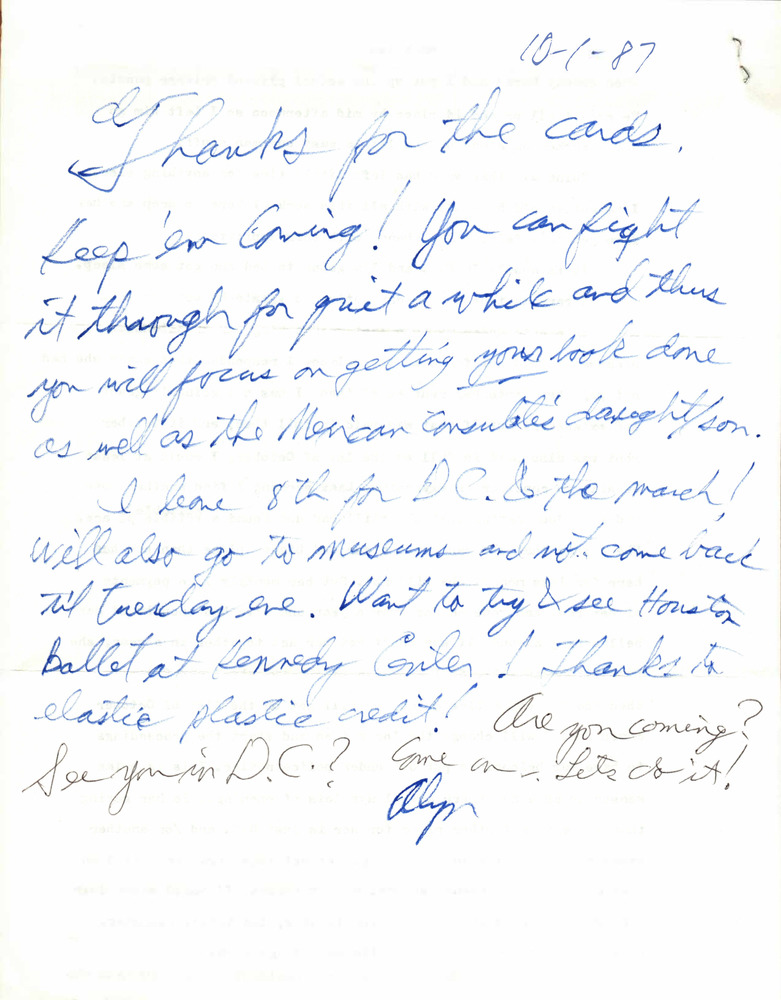 10-1-87
Thanks for the cards.
Keep 'em Coming! You can fight
it through for quiet a while and thus
you will focus on getting your book done
as well as the Mexican Consulate's daught/son.
I leave 8th for D.C. & the march!
Will also go to museums and not come back
til tuesday eve. Want to try & see Houston
Ballet at Kennedy Center! Thanks to
elastic plastic credit! Are you coming?
See you in D.C.? Come on -. Lets do it!